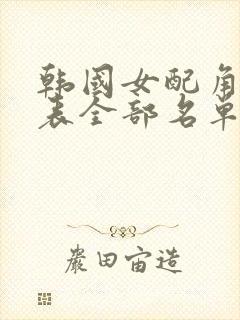 韩国女配角
表全部名单
严田宙造